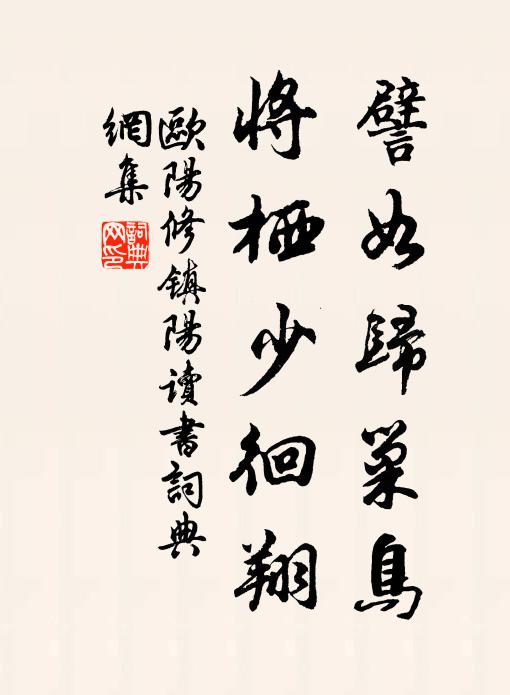 譬如歸巢鳥
將栖少徊翔
歐陽修鎮陽讀書詞典
網集
詞典網印